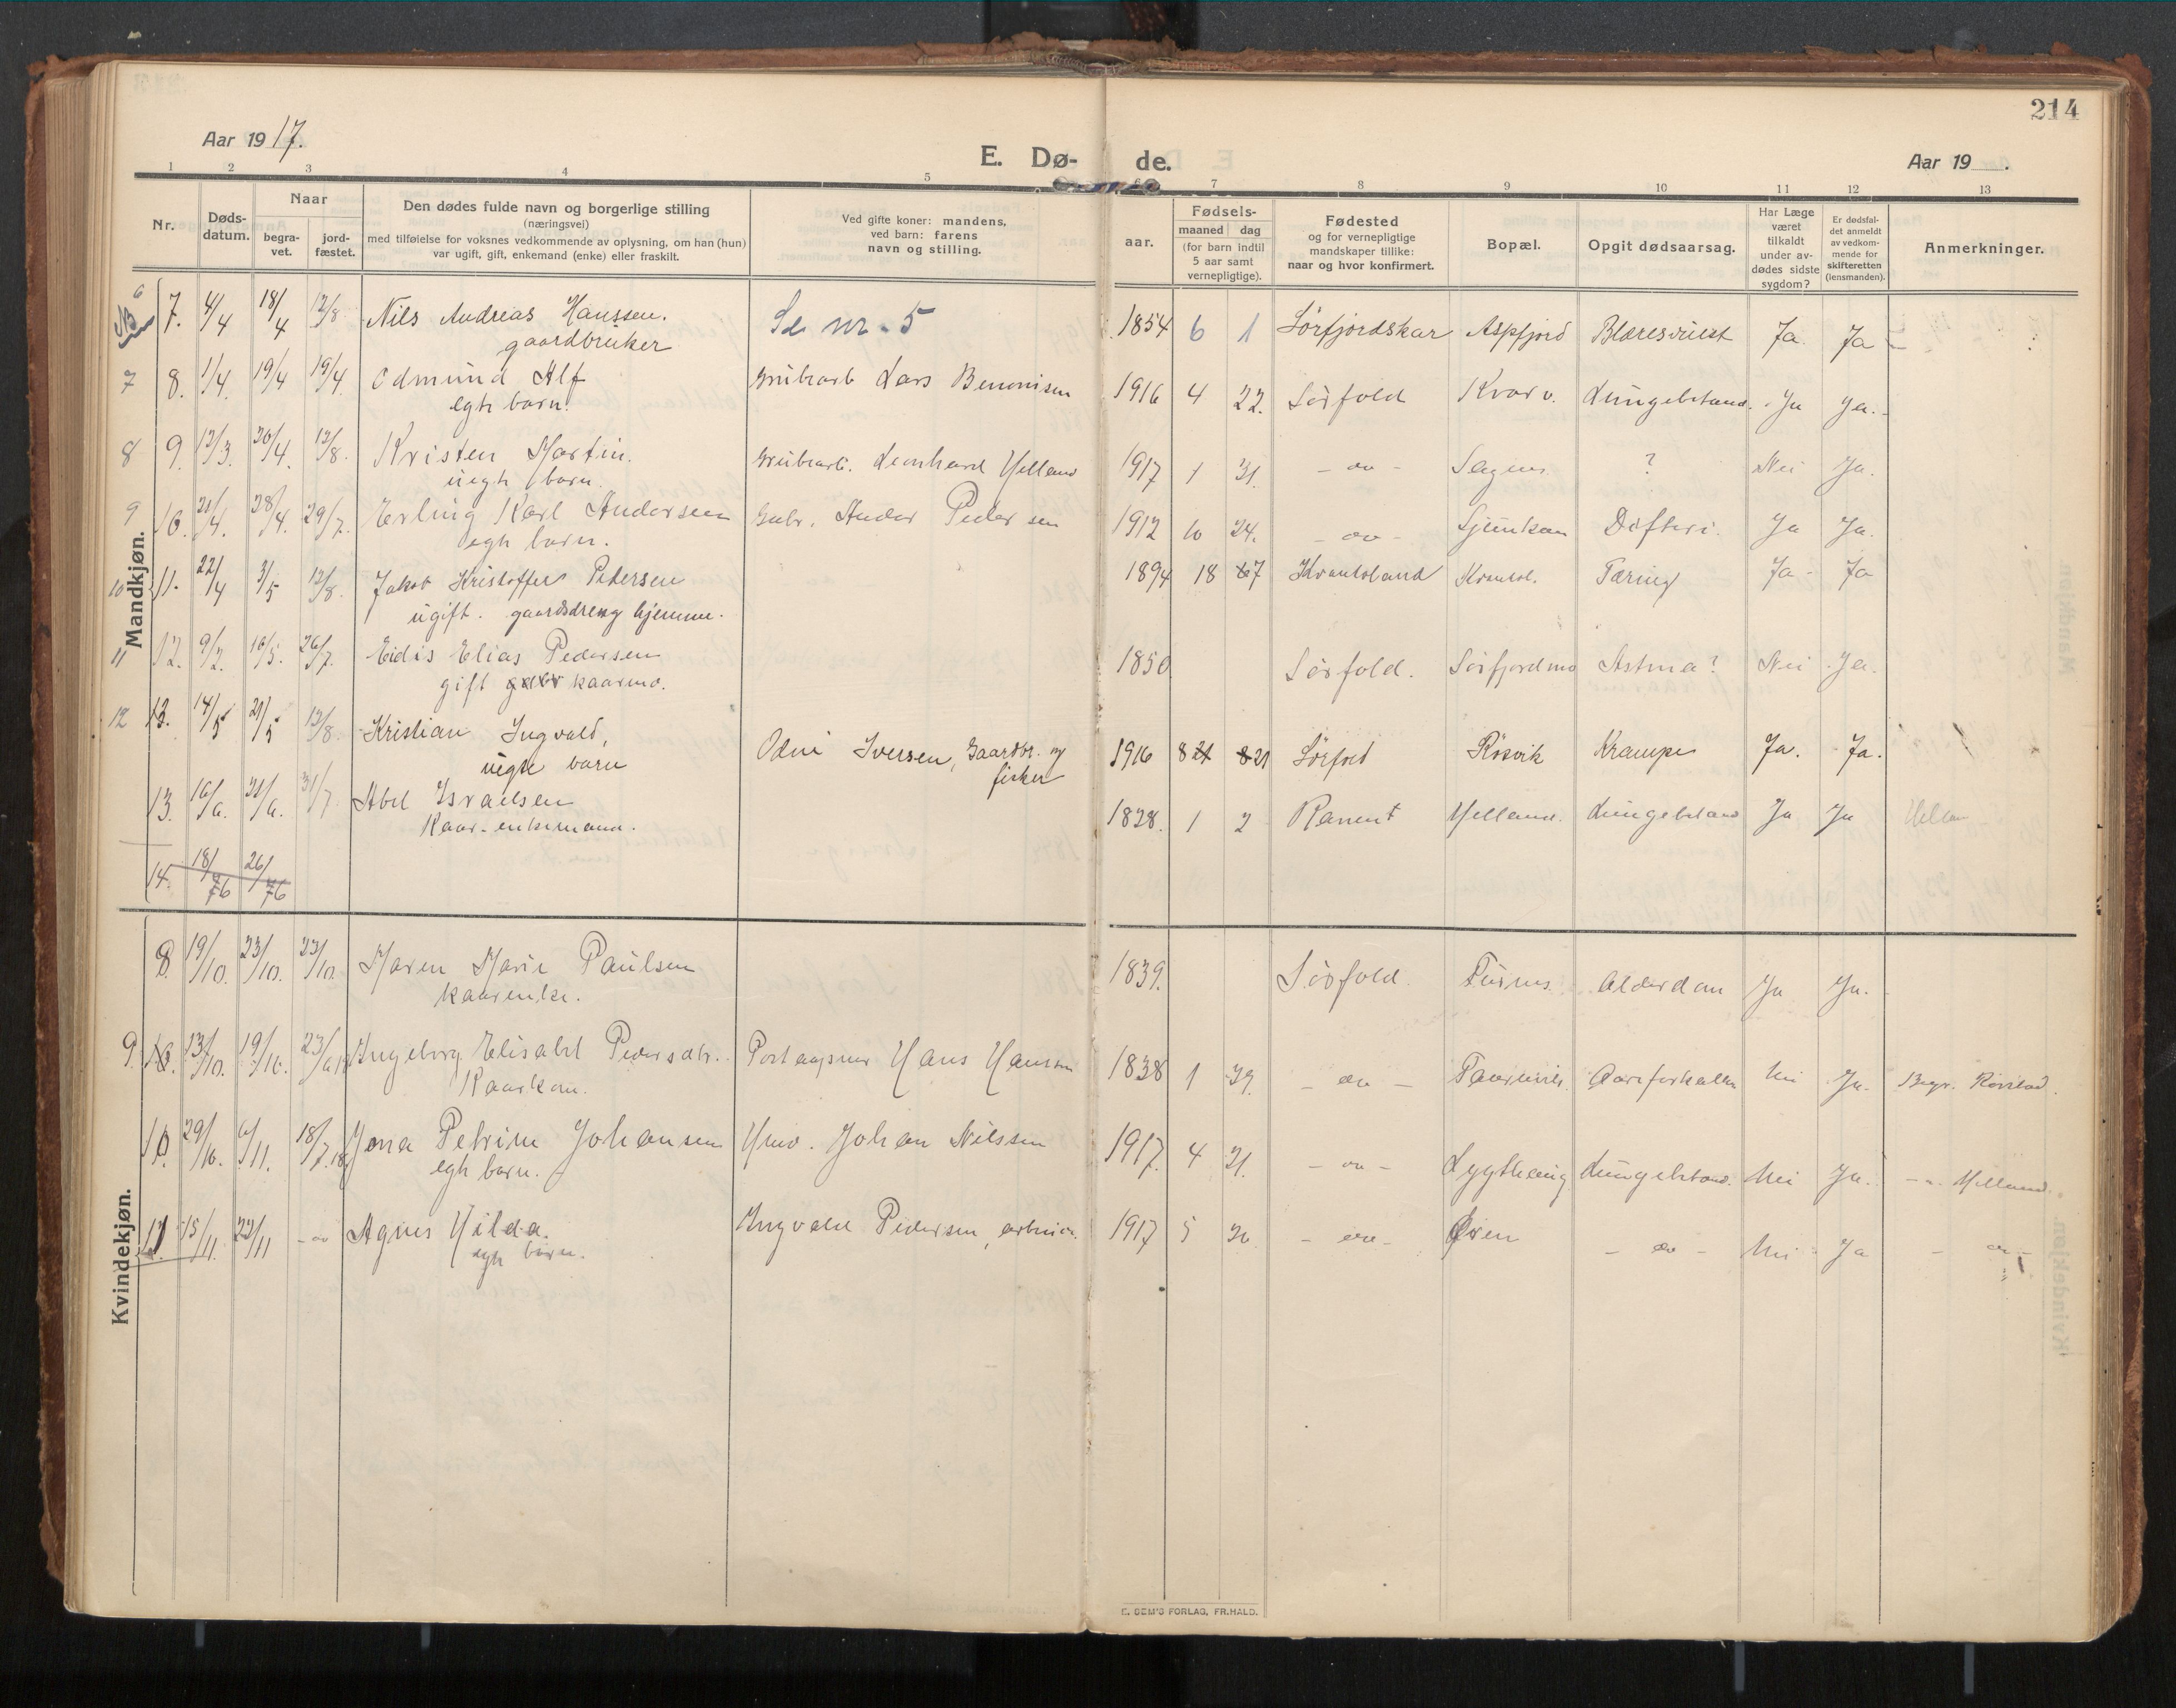 214
Aar 1917.
E. Dø- de.
Aar 19 .
1 2 3 4 5 6 7 8 9 10 11 12 13
Nr.
Døds-
datum.
Naar
begra-
vet.
jord-
fæstet.
Den dødes fulde navn og borgerlige stilling
(næringsvei)
med tilføielse for voksnes vedkommende av oplysning, om han (hun)
var ugift, gift, enkemand (enke) eller fraskilt.
Ved gifte koner: mandens,
ved barn: farens
navn og stilling.
aar.
Fødsels-
maaned dag
(for barn indtil
5 aar samt
vernepligtige).
Fødested
og for vernepligtige
mandskaper tillike:
naar og hvor konfirmert.
Bopæl.
Opgit dødsaarsag.
Har Læge
været
tilkaldt
under av-
dødes sidste
sygdom?
Er dødsfal-
det anmeldt
av vedkom-
mende for
skifteretten
(lensmanden).
Anmerkninger.
Mandkjøn.
6 7. 4/4 18/4 12/8 Nils Andreas Hanssen. Se nr. 5 1854 6 1 Sörfjordskar Aspfjord Ja Ja
gaardbruker
7 8. 1/4. 19/4 19/4. Odmund Alf Lars Benonisen 1916 4 22. Sörfold Kvarv. Ja Ja.
egte barn.
8 9. 12/3. 30/4. 12/8. Kristen Martin. Leonhard Helland 1917 1 31. - " - ? Nei Ja.
uegte barn.
9 10. 21/4. 28/4. 29/7. Erling Karl Andersen Gbr. Andor Pedersen 1912 10 24. Difteri. Ja Ja.
egte barn.
10 11. 22/4 3/5 12/8. Jakob Kristoffer Pedersen 1894 18 7 Kvantoland Tæring Ja Ja
ugift. gaardsdreng hjemme.
11 12. 9/2. 16/5. 26/7. Eidis Elias Pedersen 1850. Sörfold. Sörfjordmo Astma? Nei Ja.
gift kaarmo.
12 13. 14/5 21/5 12/8. Kristian Ingvald, Odin Iversen, Gaardbr. og 1916 8 21 Sörfold Rösvik Krampe Ja. Ja.
uegte barn fisker
13. 16/6. 21/6. 31/7. Abel Israelsen 1828. 1 2 Ranen Helland. Ja Ja
Kaar-enkemand.
14. 18/6 26/6
Kvindekjøn.
8 19/10. 23/10. 23/10. Maren Marie Paulsen 1839. Sörfold. Alderdom Ja Ja.
kaarenke.
9. 13/10. 19/10. Ingeborg Elisabet Pedersdtr. Hans Hansen 1838 1 29. Nei Ja. Begr. Rörstad.
Kaarkone.
10. 29/10. 6/11. 18/7.18 Petrine Johansen Johan Nilssen 1917. 4 21. - " - Nei Ja. - " - Helland.
egte barn.
11 15/11. 22/11 - " Agnes Hilda. Ingvald Pedersen, arbeider. 1917 5 30 Øren - " - Nei Ja - " -
egte barn.
E. SEM'S FORLAG, FR.HALD.